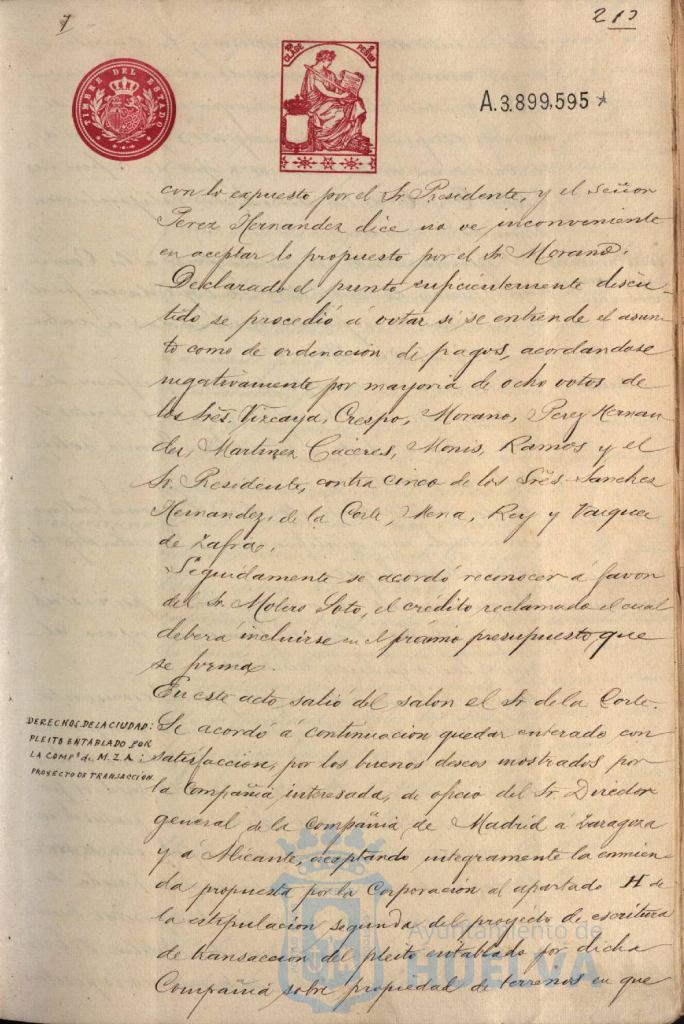 7
213
TIMBRE DEL ESTADO
CLASE
PESETA
A.3.899,595
con lo expuesto por el Sr. Presidente, y el señor
Perez Hernandez dice no ve inconveniente
en aceptar lo propuesto por el Sr. Morano.
Declarado el punto suficientemente discu-
tido se procedió á votar si se entiende el asun-
to como de ordenacion de pagos, acordandose
negativamente por mayoria de ocho votos de
los Srēs. Vizcaya, Crespo, Morano, Perez Hernan
dez, Martinez Cáceres, Monis, Ramos y el
Sr. Presidente, contra cinco de los Srēs. Sanchez
Hernandez, de la Corte, Mena, Rey y Vazquez
de Zafra.
Seguidamente se acordó reconocer á favor
del Sr. Molero Soto, el crédito reclamado el cual
deberá incluirse en el próximo presupuesto que
se forma.
En este acto salió del salon el Sr. de la Corte.
DERECHOS DE LA CIUDAD:
PLEITO ENTABLADO POR
LA COMPª de M.Z.A.:
PROYECTO DE TRANSACCIÓN
Se acordó á continuacion quedar enterado con
satisfaccion, por los buenos deseos mostrados por
la Compañia interesada, de oficio del Sr. Director
general de la Compañia de Madrid á Zaragoza
y á Alicante, aceptando integramente la enmien
da propuesta por la Corporacion al apartado H de
la estipulacion segunda del proyecto de escritura
de transaccion del pleito entablado por dicha
Compañia sobre propiedad de terrenos en que
Ayuntamiento de
HUELVA